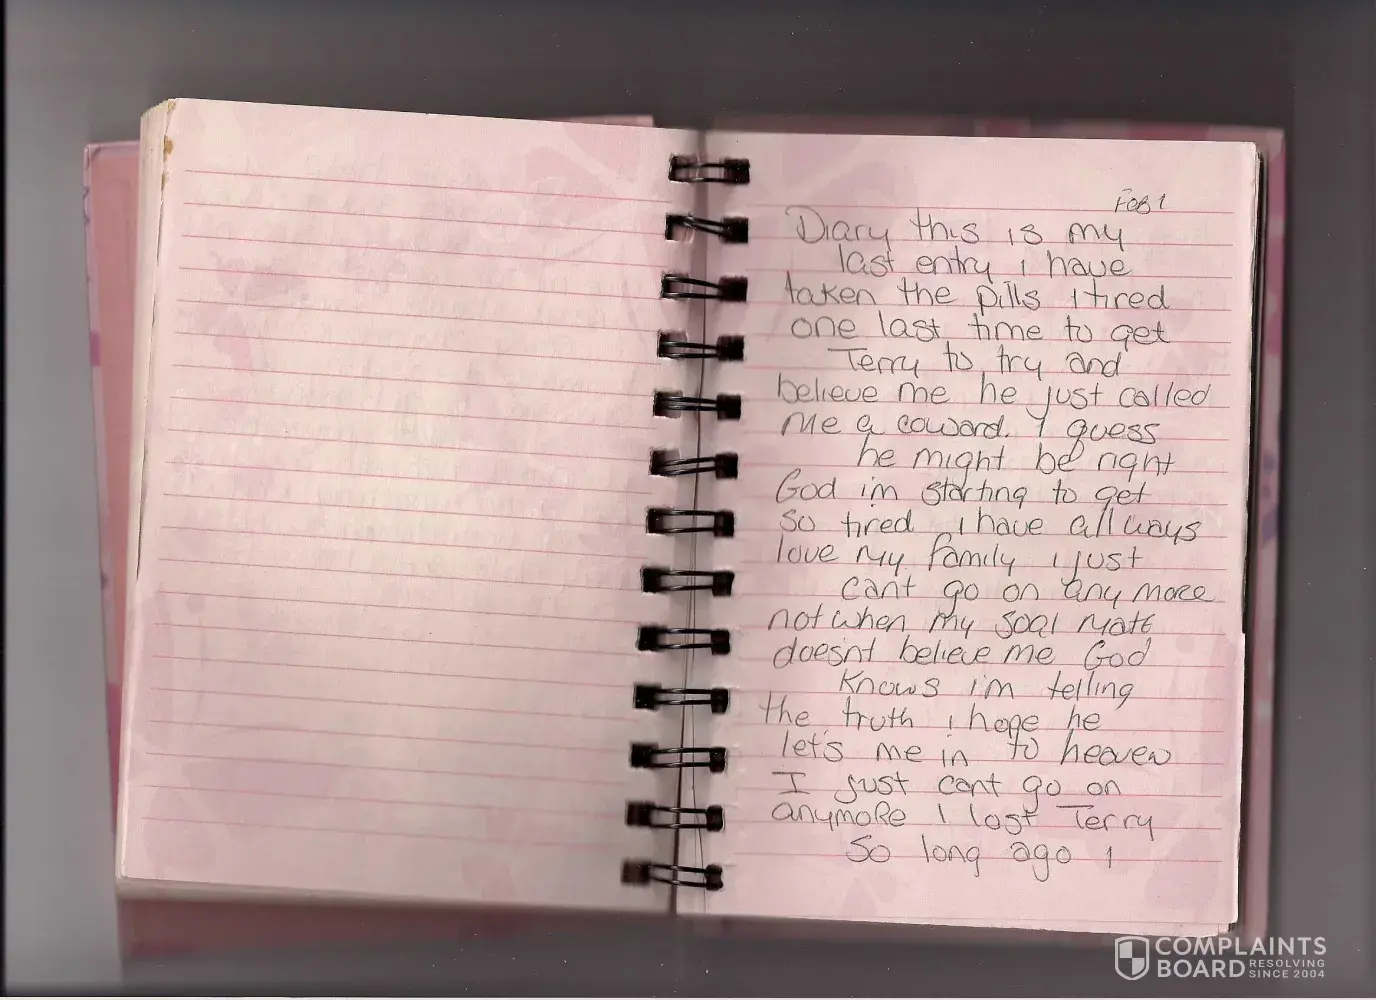 Feb 1
Diary this is my
last entry i have
taken the pills i tired
one last time to get
Terry to try and
believe me he just called
me a coward. I guess
he might be right
God im starting to get
so tired i have allways
love my family i just
cant go on any more
not when my soal mate
doesnt believe me God
knows i'm telling
the truth i hope he
let's me in to heaven
I just cant go on
anymore I lost Terry
So long ago i
COMPLAINTS
BOARD RESOLVING
SINCE 2004